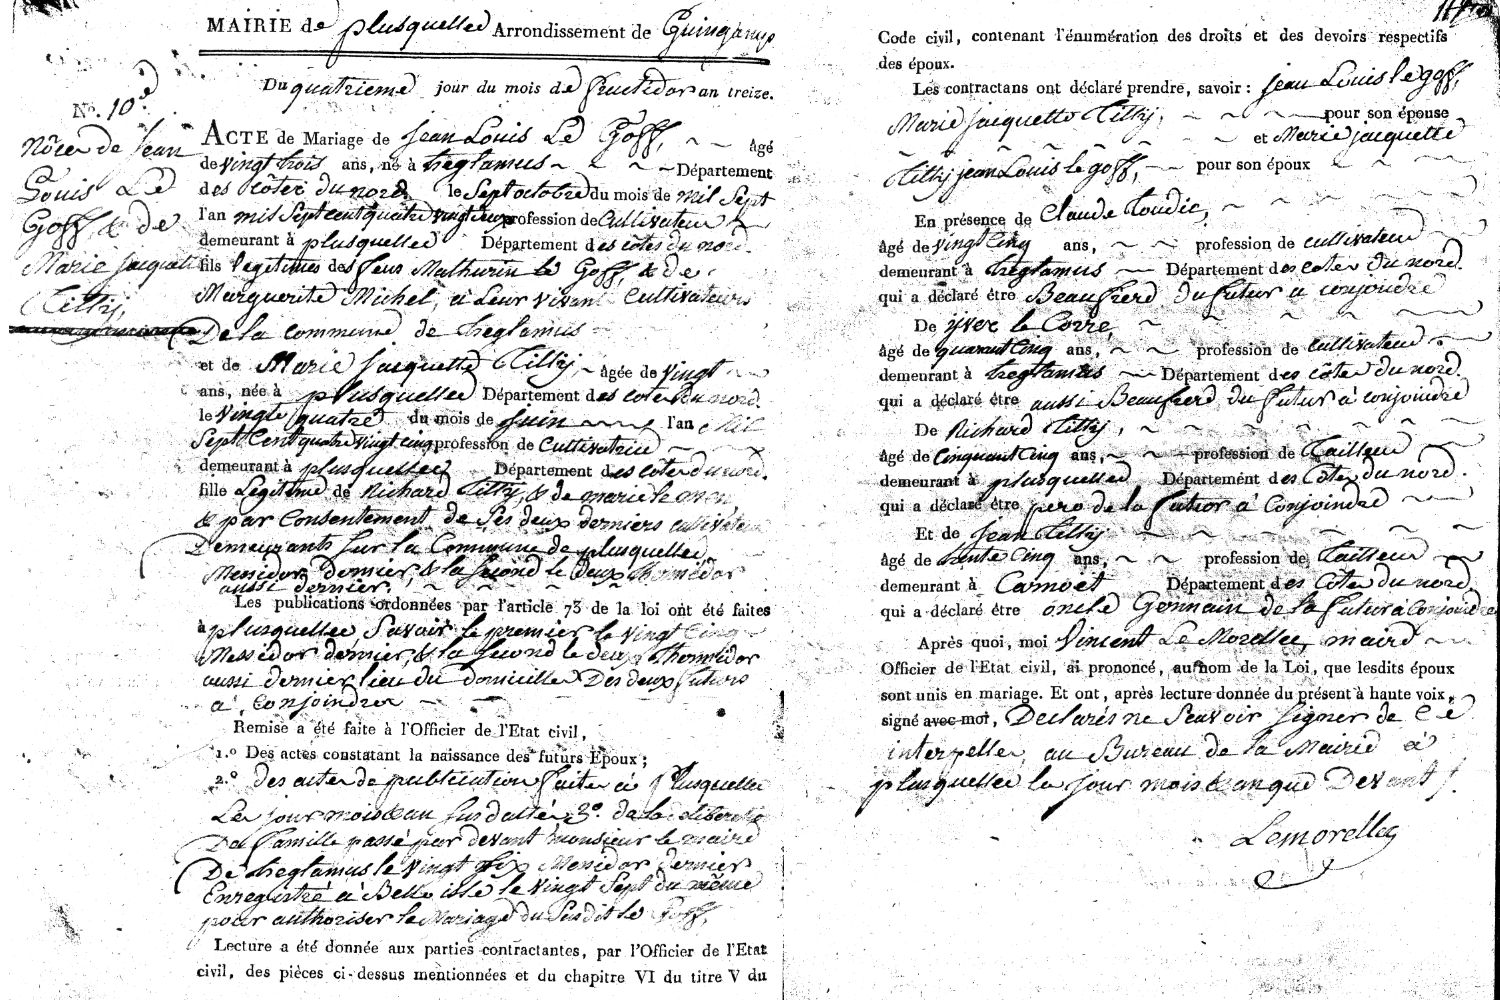 MAIRIE de plusquellec Arrondissement de Guingamp
Du quatrieme jour du mois de fructidor an treize.
No. 10e
Nôce de Jean
Louis Le
Goff, & de
Marie Jacquette
Tilly,
ACTE de Mariage de Jean Louis Le Goff, âgé
de vingt trois ans, né à treglamus Département
des côtes du nord le Sept octobre du mois de mil Sept
l'an mil Sept cent quatre vingt deux profession de Cultivateur
demeurant à plusquellec Département des côtes du nord.
fils legitimes des feus Mathurin le Goff, & de
Marguerite Michel, à Leur vivant Cultivateurs
De la commune de treglamus
et de Marie Jacquette Tilly, âgée de vingt
ans, née à plusquellec Département des côtes du nord.
le vingt quatre du mois de Juin l'an Mil
Sept Cent quatre vingt cinq profession de Cultivatrice
demeurant à plusquellec Département des côtes du nord.
fille Légitime de Richard Tilly, & de marie
& par Consentement de Ses deux derniers cultivateurs
Demeurants Sur la Commune de plusquellec
Messidor dernier, & la Second le deux thermidor
aussi dernier.
Les publications ordonnées par l'article 73 de la loi ont été faites
à plusquellec Savoir le premier le vingt Cinq
Messidor dernier, & la Second le deux Thermidor
aussi dernier lieu du domicille Des deux futurs
à Conjoindre
Remise a été faite à l'Officier de l'Etat civil,
1.o Des actes constatant la naissance des futurs Epoux;
2.o des actes de publication faites à Plusquellec
Les jour mois & an Sus dattés 3o. de la deliberé
Da famille passé par devant monsieur le maire
De treglamus le vingt Six Messidor dernier
Enregistré à Belle isle le vingt Sept du même
pour authoriser le Mariage du Susdit le Goff,
Lecture a été donnée aux parties contractantes, par l'Officier de l'Etat
civil, des pièces ci-dessus mentionnées et du chapitre VI du titre V du
Code civil, contenant l'énumération des droits et des devoirs respectifs
des époux.
Les contractans ont déclaré prendre, savoir : Jean Louis le goff,
Marie Jacquette Tilly, pour son épouse
et Marie jacquette
Tilly jean Louis le goff, pour son époux
En présence de Claude Toudic,
âgé de vingt Cinq ans, profession de cultivateur
demeurant à treglamus Département des côtes du nord.
qui a déclaré être Beaufrere du futur à conjoindre
De yves le Corre,
âgé de quarant Cinq ans, profession de Cultivateur
demeurant à treglamus Département des côtes du nord.
qui a déclaré être aussi Beaufrere du futur à conjoindre
De Richard Tilly,
âgé de Cinquant Cinq ans, profession de Tailleur
demeurant à plusquellec Département des Côtes du nord.
qui a déclaré être pere de la future à Conjoindre
Et de Jean Tilly
âgé de trente Cinq ans, profession de Tailleur
demeurant à Carnoët Département des Côtes du nord
qui a déclaré être oncle Germain de la future à Conjoindre
Après quoi, moi Vincent Le Morellec, maire
Officier de l'Etat civil, ai prononcé, au nom de la Loi, que lesdits époux
sont unis en mariage. Et ont, après lecture donnée du présent à haute voix,
signé avec moi, Declarés ne Scavoir Signer de Ce
interpellés, au Bureau de la Mairie à
plusquellec le jour mois & an que Devant
Lemorellec